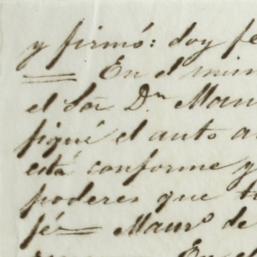 y firmó: doy fé
En el mism
el Sor Dn Maur
fiqué el auto a
está conforme y
poderes que t
fé— Mauro de
En el